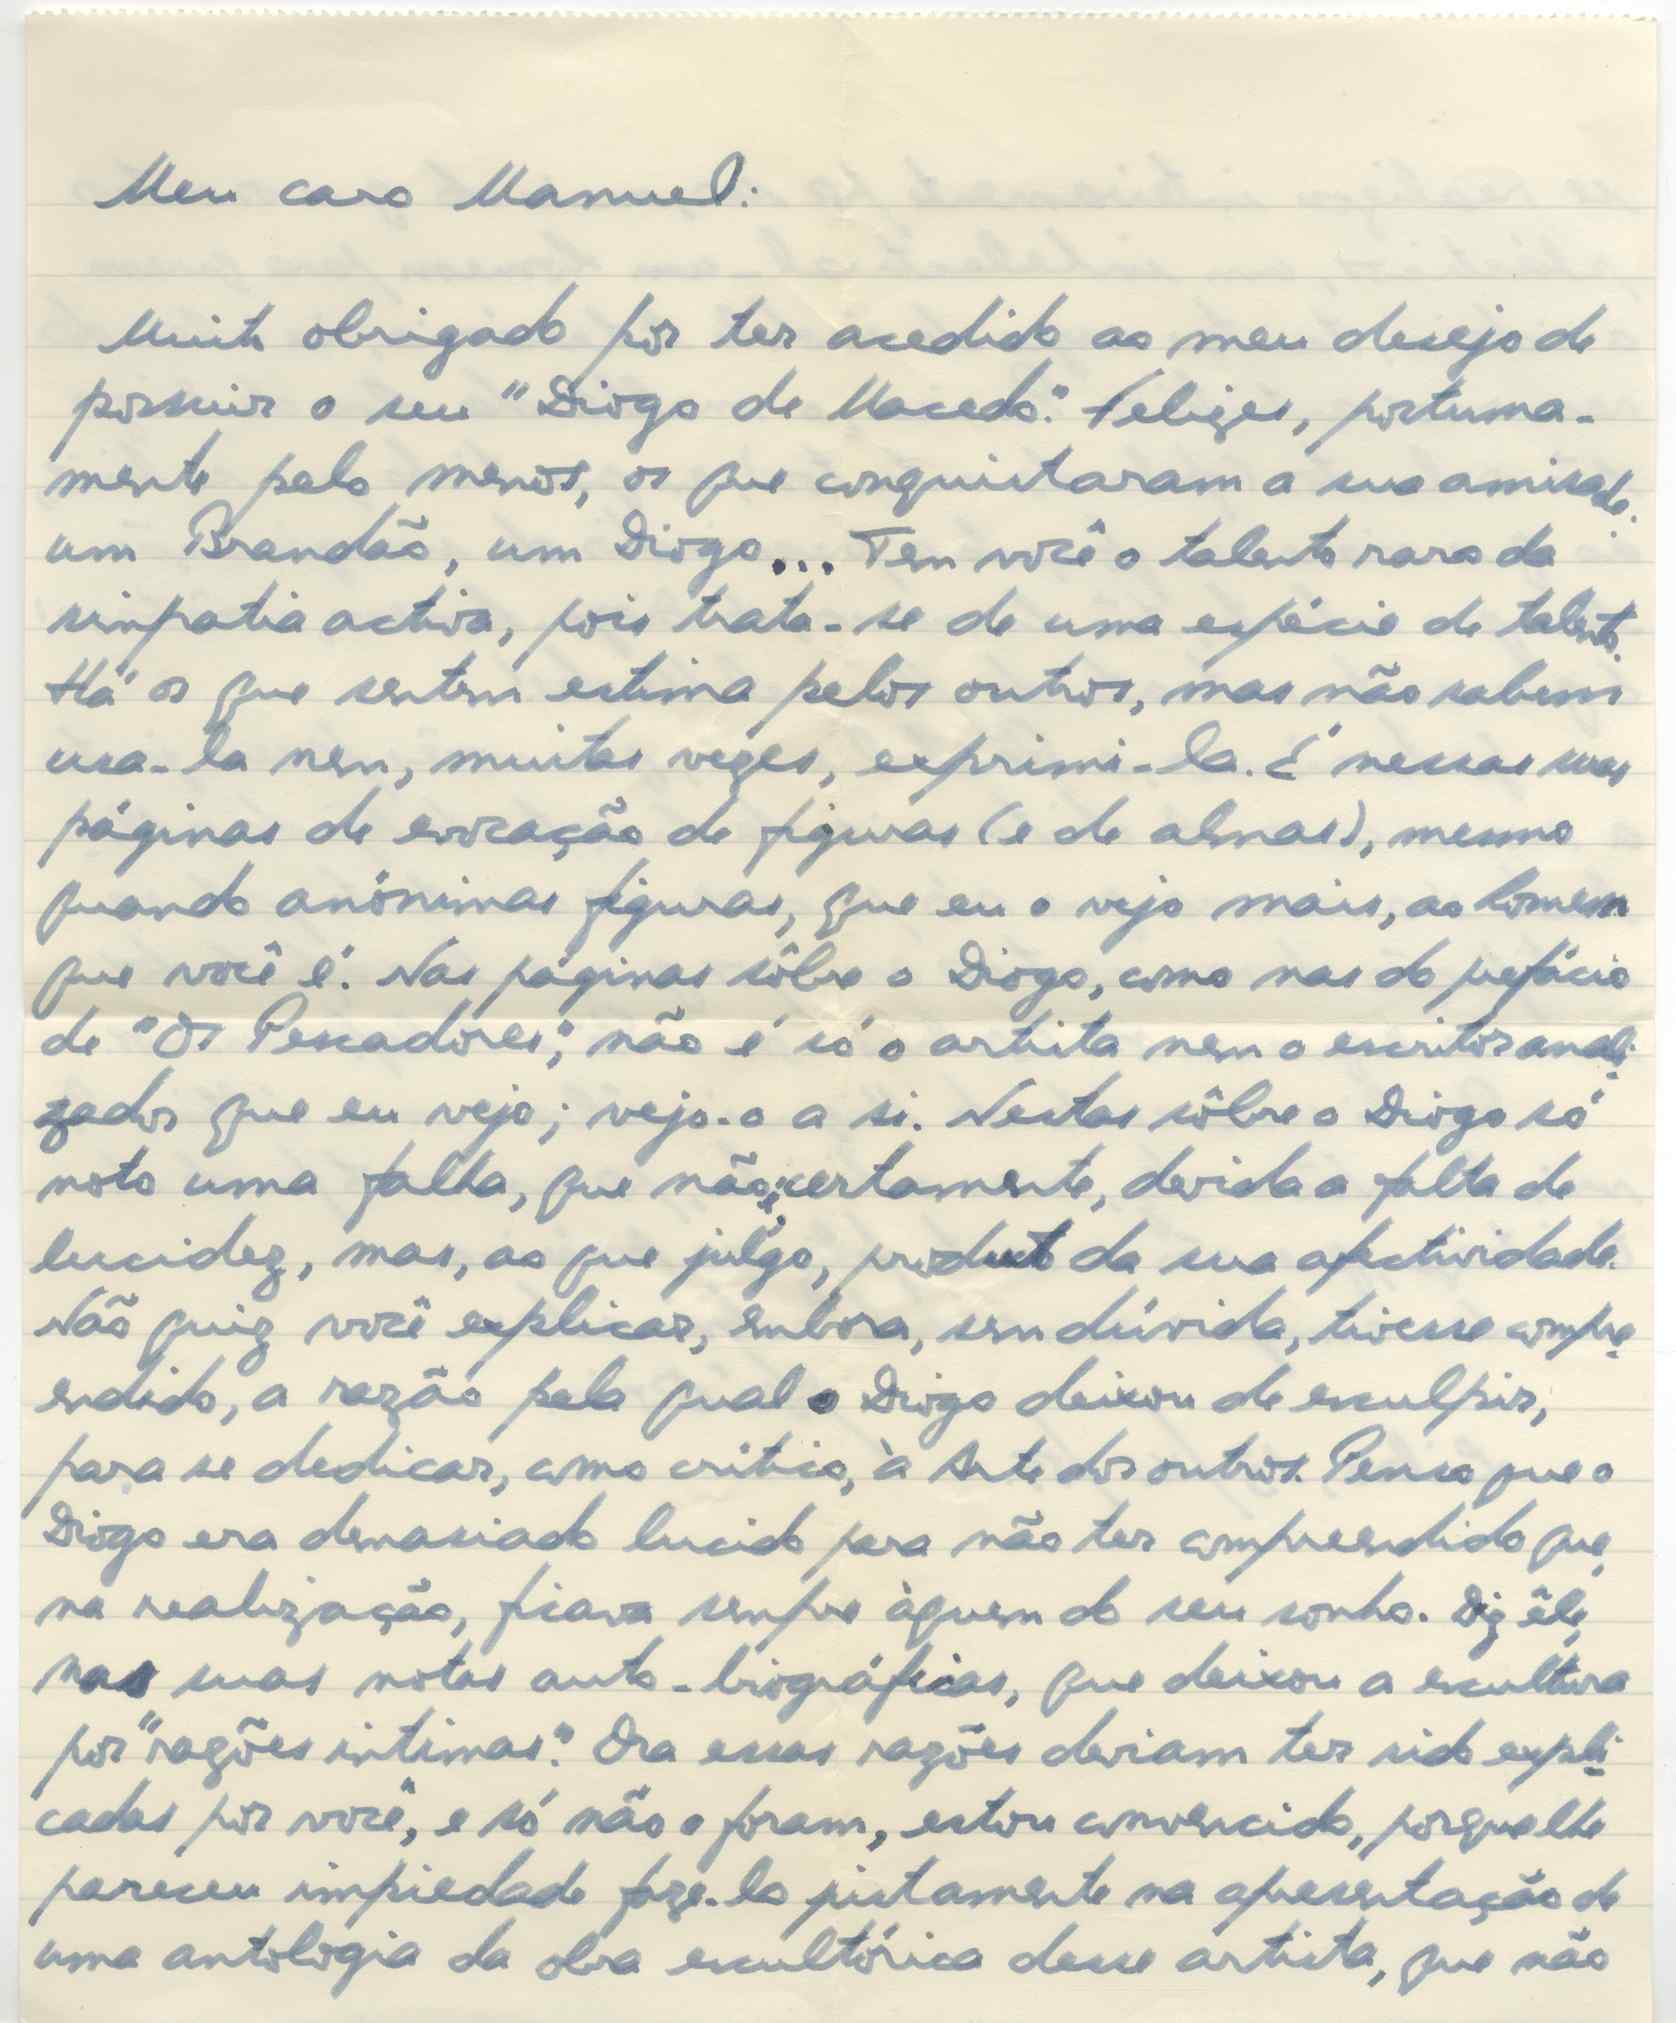 Meu caro Manuel:
Muito obrigado por ter acedido ao meu desejo de
possuir o seu "Diogo de Macedo". Felizes, postuma-
mente pelo menos, os que conquistaram a sua amisade.
um Brandão, um Diogo... Tem você o talento raro da
simpatia activa, pois trata-se de uma espécie de talento.
Há os que sentem estima pelos outros, mas não sabem
usa-la nem, muitas vezes, exprimi-la. É nessas suas
páginas de evocação de figuras (e de almas), mesmo
quando anónimas figuras, que eu o vejo mais, ao homem
que você é. Nas páginas sôbre o Diogo, como nas do prefácio
de "Os Pescadores", não é só o artista nem o escritor anali-
zador que eu vejo; vejo-o a si. Nestas sôbre o Diogo só
noto uma falha, que não é, certamente, devida a falta de
lucidez, mas, ao que julgo, producto da sua afectividade.
Não quiz você explicar, embora, sem dúvida, tivesse compre-
endido, a razão pela qual o Diogo deixou de esculpir,
para se dedicar, como critico, à Arte dos outros. Penso que o
Diogo era demasiado lucido para não ter compreendido que,
na realização, ficava sempre àquem do seu sonho. Diz êle,
nas suas notas auto-biográficas, que deixou a escultura
por "razões intimas". Ora essas razões deviam ter sido expli-
cadas por você, e só não o foram, estou convencido, porque lhe
pareceu impiedade faze-lo justamente na apresentação de
uma antologia da obra escultórica desse artista, que não